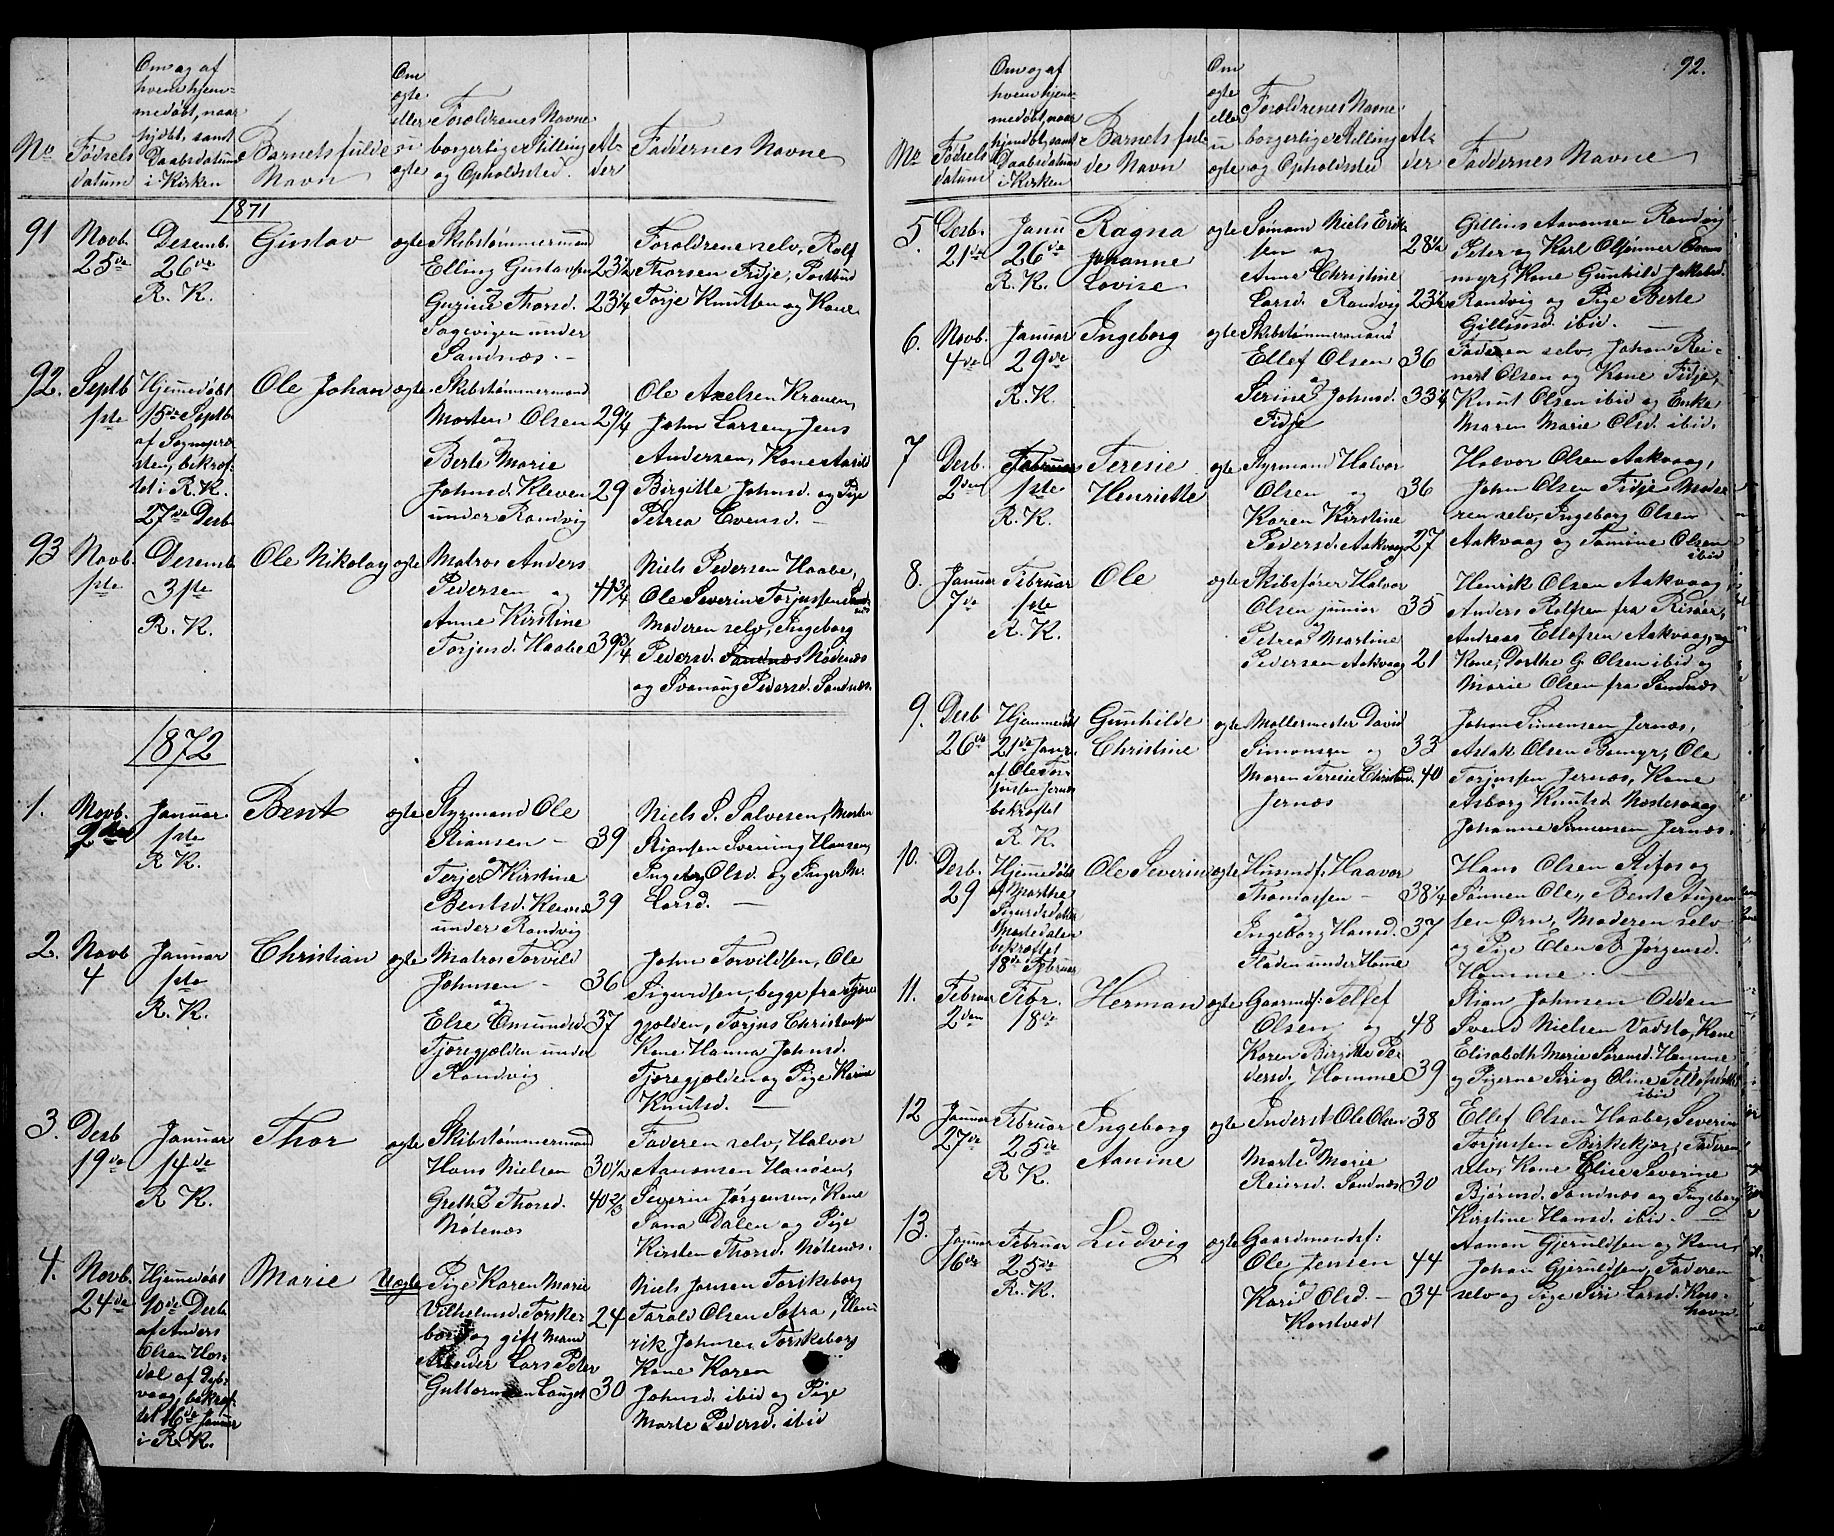 No
Fødsels
datum
Om og af
hvem hjem-
medøbt, naar
hjdøbt, samt
Daabsdatum
i Kirken
Barnets fulde
Navn
Om
ægte
eller
u
ægte
Forældrenes Navne
borgerlige Stilling
og Opholdsted.
Al-
der
Faddernes Navne
1871
91
Novb.
25de
Desemb.
26de
R. K.
Gustav
ægte
Skibstømmermand
Elling Gustavsen 23½
Gurine Thorsd. 23¼
Sagevigen under
Sandnæs.
Forældrene selv, Rolf
Thorsen Fidje,
Torje Knudsen og Kone
92.
Septb
1ste
Hjemmedøbt
15de Septb
af Sognepræ-
sten, bekræf-
tet i R. K.
27de Desb
Ole Johan
ægte
Skibstømmermand
Morten Olsen 29¼
og
Berte Marie
Johnsd. Kleven 29
under Randvig
Ole Axelsen Kranen,
John Larsen, Jens
Andersen, Kone Aasild
Birgitte Johnsd. og Pige
Petrea Evensd.
93
Novb.
1ste
Desemb
3ste
R. K.
Ole Nikolay
ægte
Matros Anders
Pedersen og 41¾
Anne Kirstine
Torjusd. Haabe 39¾
Niels Pedersen Haabe,
Ole Severin Torjussen
Moderen selv, Ingeborg
Pedersd. Sandnæs Nødenæs
og Svanaug Pedersd. Sandnæs.
1872
1.
Novb.
2den
Januar
1ste
R. K.
Bent
ægte
Styrmand Ole
Stiansen 39
og
Terjer Kirstine
Bentsd. Kleven 39
under Randvig
Niels S. Salvesen, Morten
Stiansen Svennung Hansen,
Ingeborg Olsd. og Inger M.
Larsd.
2.
Novb
4
Januar
1ste
R. K.
Christian
ægte
Matros Torvild
Johnsen 36
og
Else Omundsd. 37
Tjøregjølden under
Randvig
John Torvildsen, Ole
Sigurdsen, begge fra Tjøre
gjølden, Torjus Christensen
Kone Hanna Johnsd.
Tjøregjølden og Pige Karine
Knutsd.
3.
Desb
19de
Januar
14de
R. K.
Thor
ægte
Skibstømmermand
Hans Nielsen 30½
og
Grethe Thorsd. 40⅔
Nøtenæs
Faderen selv, Halvor
Aanonsen Hanøen,
Severin Jørgensen, Kone
Sana Dalen og Pige
Kirsten Thorsd. Nøtenæs.
4.
Novb.
24de
Hjemmedøbt
10de Desb.
af Anders
Olsen Hos-
dal af Dyb-
vaag, bekræf-
tet 16de Januar
i R. K.
Marie
Uægte
Pige Karen Marie
Vilhelmsd. Torske 24
borg og gift Mand
Arbeider Lars Peter
Guttormsen Lauget 30
Niels Jensen Torskeborg
Tarald Olsen Satra, Hen-
rik Johnsen Torskeborg
Kone Karen
Johnsd. ibid og Pige
Marte Pedersd. ibid
92.
No
Fødsels
datum
Om og af
hvem hjem-
medøbt, naar
hjemdøbt, samt
Daabsdatum
i Kirken
Barnets ful-
de Navn
Om
ægte
eller
u
ægte
Forældrenes Navne
borgerlige Stilling
og Opholdsted
Al-
der
Faddernes Navne
5.
Desb.
21de
Janu
26de
R. K.
Ragna
Johanne
Lovise
ægte
Sømand Niels Erik
sen og 28½
Anne Christine
Larsd. Randvig 23½
Gillius Aanonsen Randvig
Peter og Karl
myr, Kone Gunhild Jakobsd.
Randvig og Pige Berte
Gilliusd. ibid.
6.
Novb.
4de
Januar
29de
R. K.
Ingeborg
ægte
Skibstømmermand
Ellef Olsen 36
og
Serine Johnsd. 33¼
Fidje
Faderen selv, Johan Rei-
nert Olsen og Kone Fidje,
Knut Olsen ibid og Enke
Maren Marie Olsd. ibid.
7
Desb.
2den
Februar
1ste
R. K.
Teresie
Henriette
ægte
Styrmand Halvor
Olsen og 36
Karen Kirstine
Pedersd. Aakvaag 27
Halvor Olsen Aakvaag,
John Olsen Fidje, Mode-
ren selv, Ingeborg Olsen
Aakvaag og Tomine Olsen
ibid
8.
Januar
7de
Februar
1ste
R. K.
Ole
ægte
Skibsfører Halvor
Olsen junior 35
og
Petrea Martine
Pedersen Aakvaag 21
Henrik Olsen Aakvaag
Anders Rolfsen fra Risøer,
Andreas Ellefsen Aakvaag, og
Kone, Dorthe G. Olsen ibid og
Marie Olsen fra Sandnæs
9.
Desb
26de
Hjemmedøbt
21de Janr.
af Ole Tor-
jussen Jernæs
bekræftet
R. K.
Gunhilde
Christine
ægte
Møllermester David
Simonsen og 33
Maren Teresie Christensd. 40
Jernæs
Johan Simensen Jernæs,
Aslak Olsen Bomyr, Ole
Torjussen Jernæs, Kone
Asborg Knutsd. Næstesvaag
Johanne Simensen Jernæs.
10.
Desb.
29
Hjemmedøbt
af Marthe
Sigurdsdatter
Mostedalen
bekræftet
18de Februar
Ole Severin
ægte
Husmd: Haavor
Thomassen 38¼
og
Ingeborg Hansd. 37
Fladen under Homme
Hans Olsen Aifos og
Sønnen Ole, Bent Augen
sen Ørn, Moderen selv
og Pige Elen B. Jørgensd.
Homme
11.
Februar
2den
Febr.
18de
Herman
ægte
Gaardmf: Tellef
Olsen og 48
Karen Birgitte Pe
dersd. Homme 39
Stian Johnsen Odden
Svend Nielsen Vadsto, Kone
Elisabeth Marie Sørensd. Homme
og Pigerne Siri og Oline Tellefsdøttre
ibid
12
Januar
27de
Februar
25de
R. K.
Ingeborg
Aanine
ægte
Inderst Ole Olsen 38
og
Marte Marie
Reiersd. Sandnæs 30
Ellef Olsen Haabe, Severin
Torjussen Birkekjær, Faderen
selv, Kone Elise Severine
Bjørnsd. Sandnæs og Ingeborg
Kirstine Hansd. ibid.
13.
Januar
16de
Februar
25de
R. K.
Ludvig
ægte
Gaardmandsf:
Ole Jensen 44
og
Kari Olsd. 34
Karstvedt
Aanon Gjeruldsen og Kone,
Johan Gjeruldsen, Faderen
selv og Pige Siri Larsd. Kors-
havn